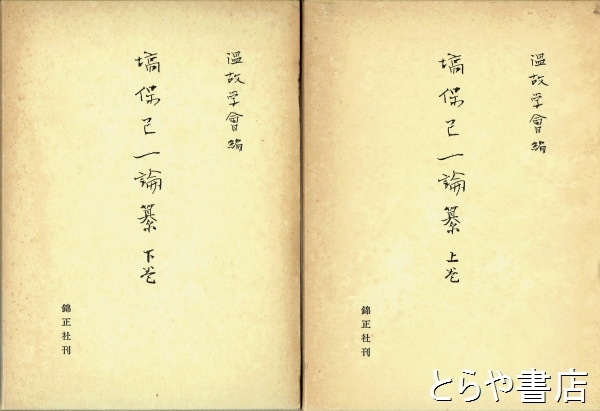 温故学會編
塙保己一論纂 上巻
錦正社刊
温故学會編
塙保己一論纂 下巻
錦正社刊
とらや書店